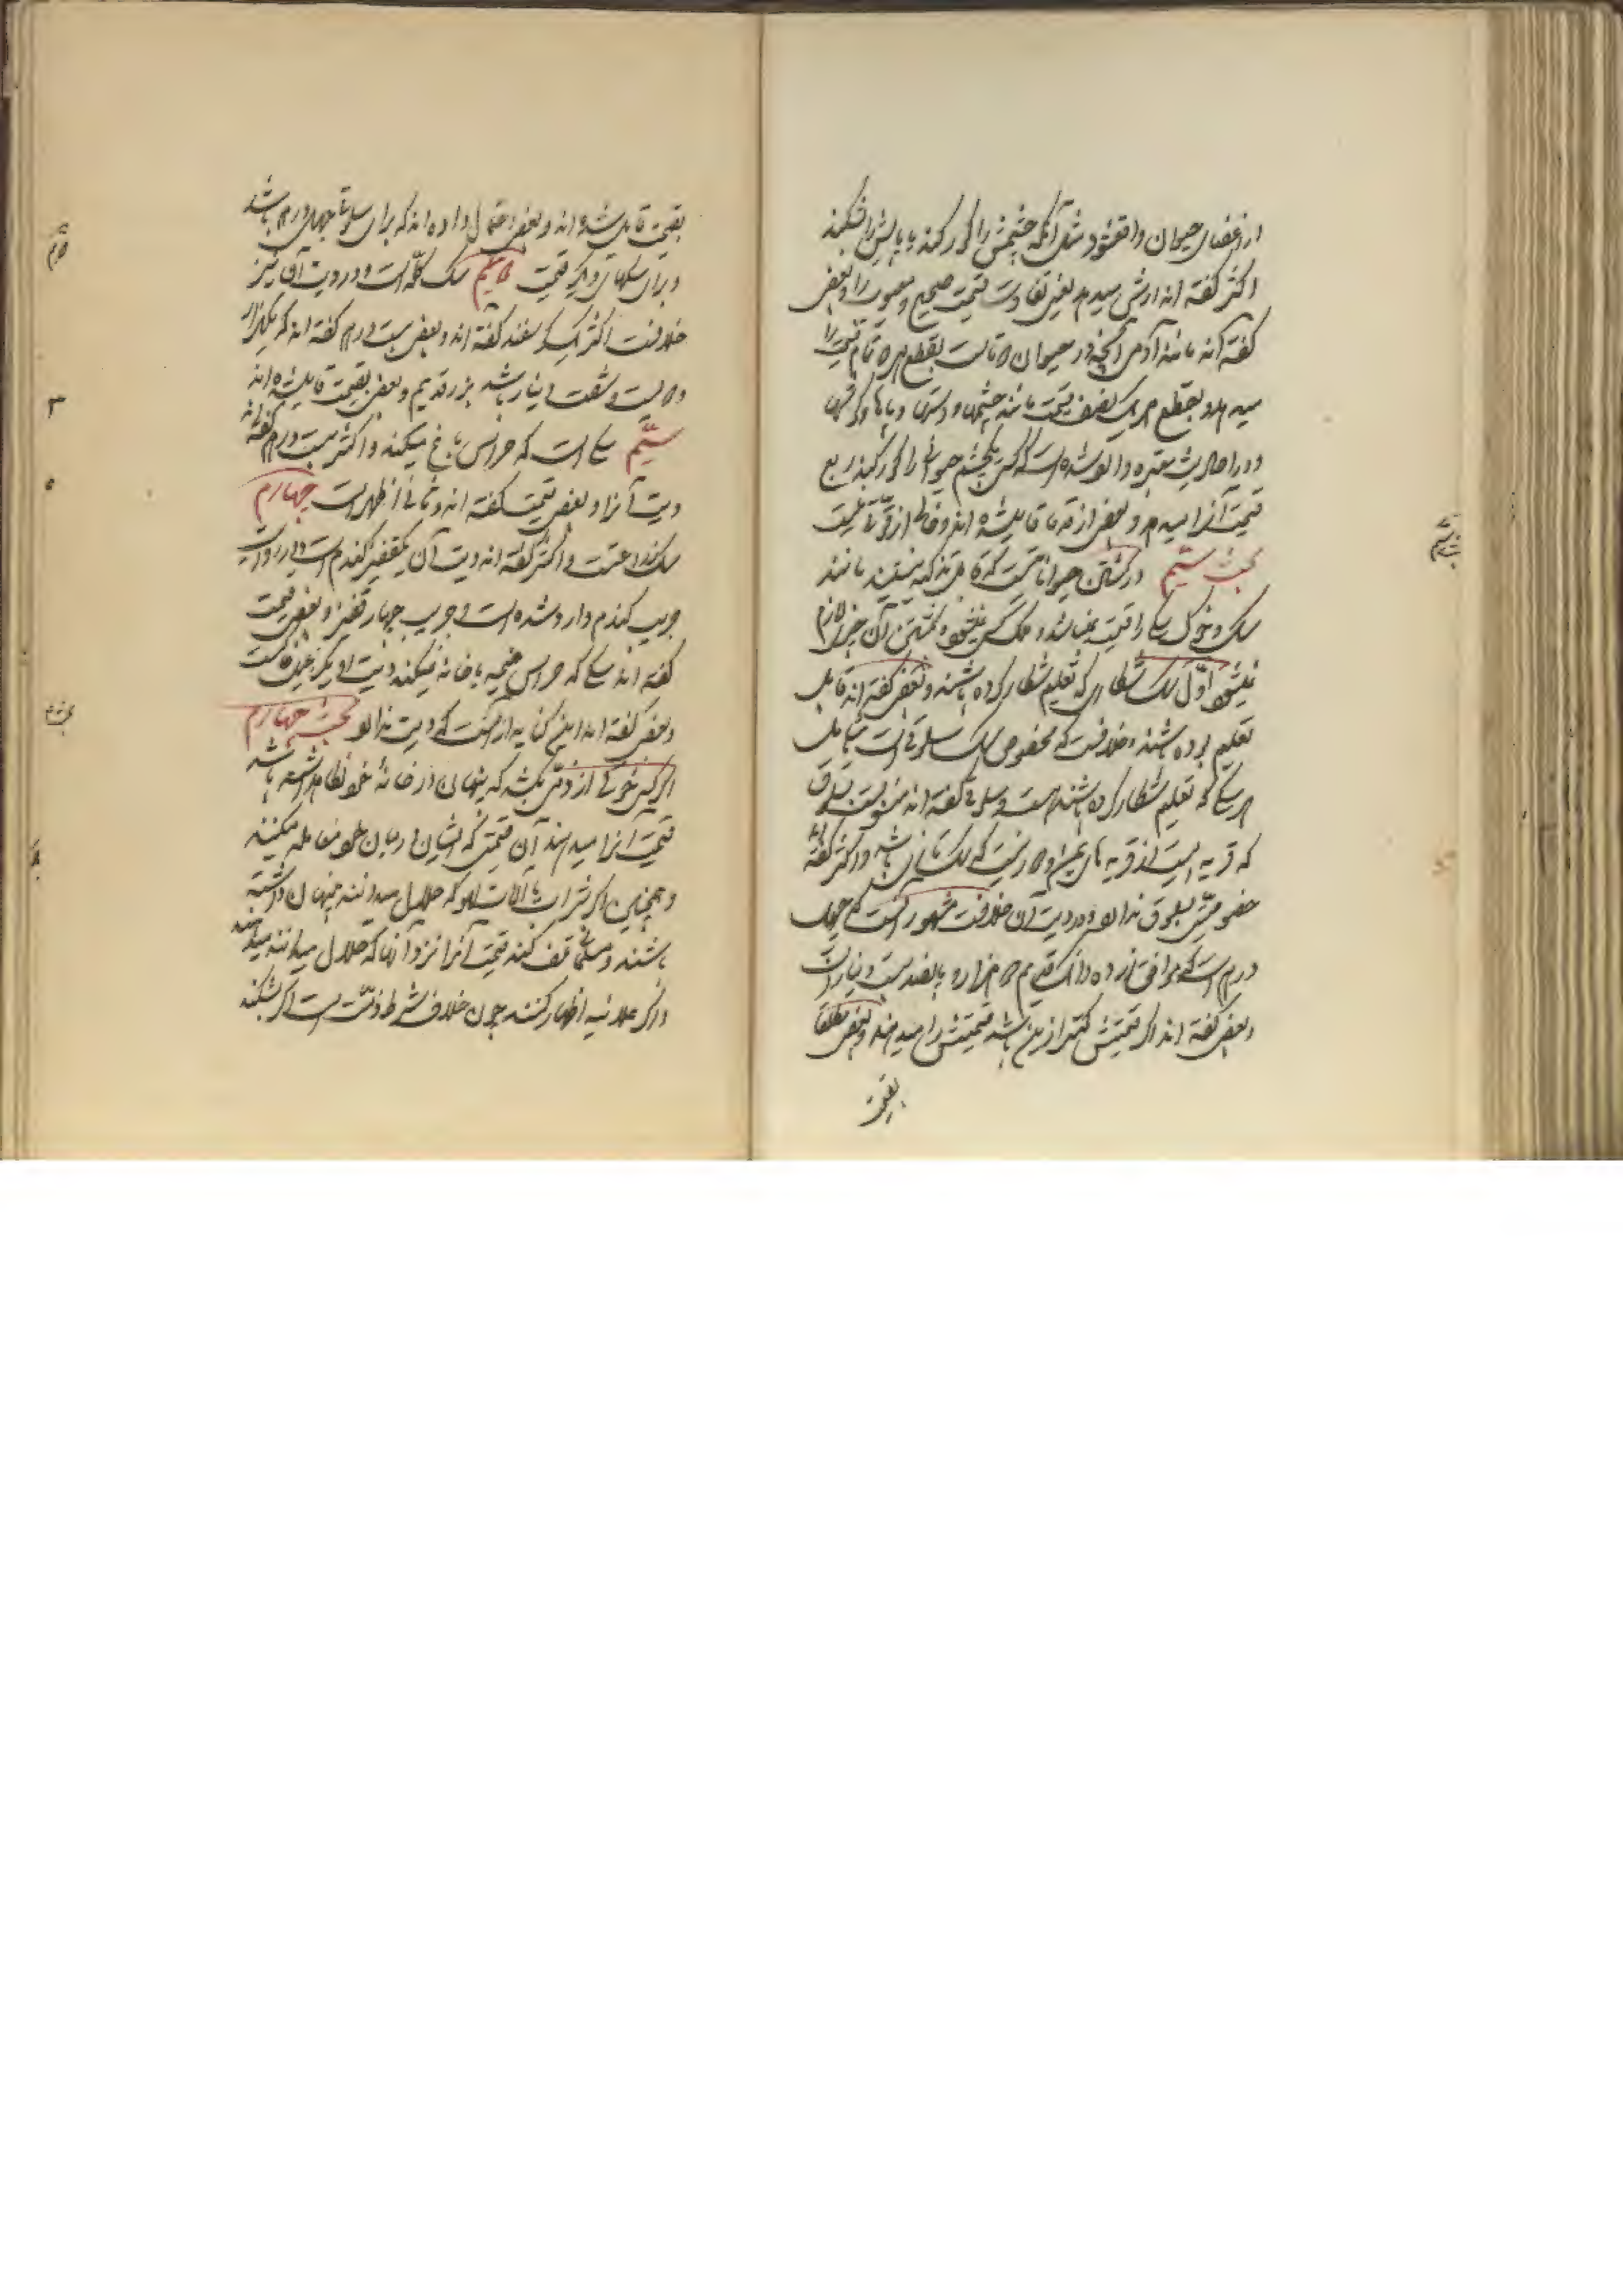 از اعضای حیوان واقع شود مثل آنکه چشمش را کور کند یا پایش را بشکند
اکثر گفته اند ارش میدهد یعنی تفاوت قیمت صحیح و معیوب را و بعضی
گفته اند مانند آدمی آنچه در حیوان دو تا است بقطع هر دو تمام قیمت را
میدهد و بقطع هر یک نصف قیمت مانند چشمها و دستها و پاها و گوشها
و در احادیث معتبره وارد شده است که کسی یکچشم حیوانی را کور کند ربع
قیمت آنرا میدهد و بعضی از قدما قایل شده اند و خالی از قوتی نیست
بحث سیم در کشتن حیواناتیست که قابل تذکیه نیستند مانند
سک و خوک سکی را قیمت نمیباشد و ملک کسی نمیشود و بکشتن آن چیزی لازم
نمیشود اول سک شکاری که تعلیم شکار کرده باشند و بعضی گفته اند قابل
تعلیم بوده باشند و خلافست که مخصوص سک سلوقی است یا شامل
هر سکی که تعلیم شکار کرده باشند هست و سلوقی گفته اند منسوبست بسلوق
که قریه ایست از قریه های یمن و
حضوصیتی بسلوق ندارد و در دیت آن خلافست مشهور آنست که چهل
درم است که موافق
و بعضی گفته اند اگر قیمتش کمتر ازین باشد قیمتش را میدهند و بعضی مطلقا
بقیمت
بقیمت قایل شده اند و بعضی احتمال داده اند که برای سلوقی چهل درم باشد
و برای سکهای دیگر قیمت دویم سک کله است و در دیت آن نیز
خلافست اکثر یک کوسفند گفته اند و بعضی بیست درم گفته اند که یکهزار
و دویست و شصت دینار باشد بزر قدیم و بعضی بقیمت قایل شده اند
سیم سکی است که حراست باغ میکند و اکثر بیست درم گفته اند
دیت آنرا و بعضی قیمت گفته اند و ثانی اظهر است چهارم
سک زراعتست و اکثر گفته اند دیت آن یکقفیز گندم است و در روایت
جریب گندم وارد شده است و جریب چهار قفیز و بعضی قیمت
گفته اند سکی که حراست خیمه یا خانه میکند
و بعضی گفته اند این کنایه از آنست که دیت ندارد بحث چهارم
اگر کسی خوکی از ذمی بکشد که پنهان در خانهٔ خود نگاه داشته باشد
قیمت آنرا میدهند آن قیمتی که ایشان در میان خود معامله میکنند
و همچنین اگر شراب یا آلات لهو که حلال میدانند پنهان داشته
باشند و مسلمانی تلف کند قیمت آنرا نزد آنها که حلال میدانند میدهند
و اگر علانیه اظهار کنند چون خلاف شرط ذمت است اگر بشکند